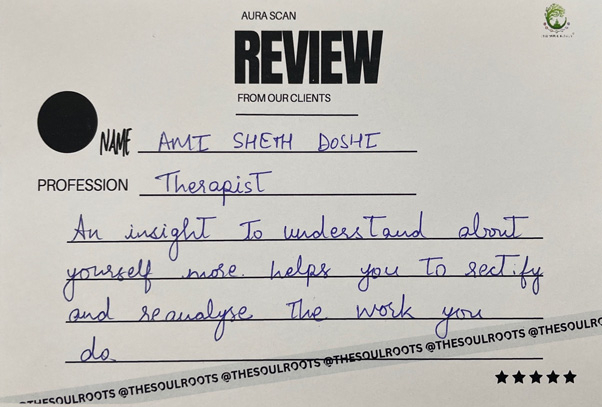 AURA SCAN
REVIEW
FROM OUR CLIENTS
NAME AMI SHETH DOSHI
PROFESSION Therapist
An insight to understand about
yourself more. helps you to rectify
and reanalyse the work you
do
@THESOULROOTS @THESOULROOTS @THESOULROOTS @THESOULROOTS @THESOULROOTS